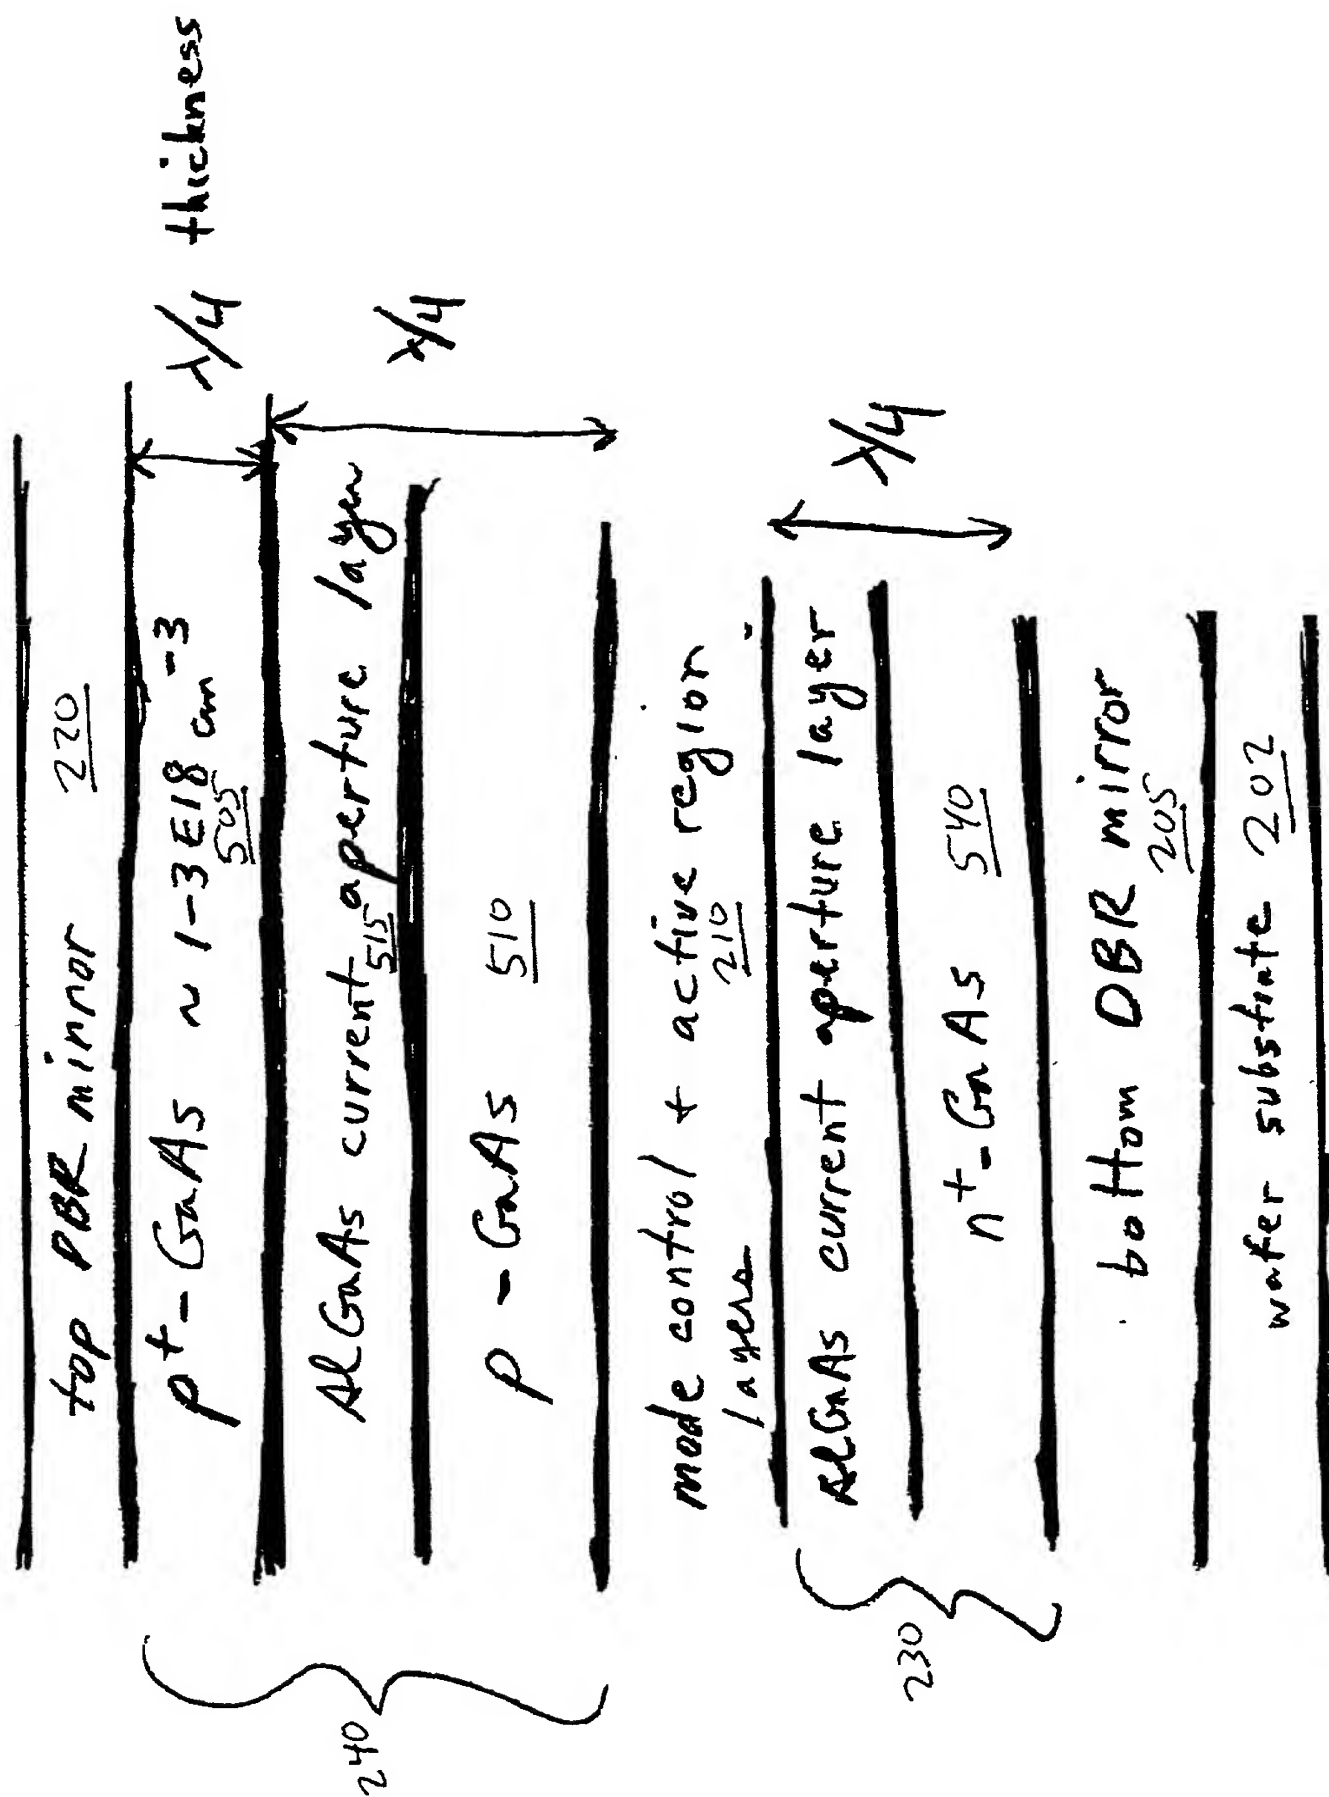 top DBR mirror 220
p+-GaAs ~ 1-3E18 cm-3
505
λ/4 thickness
AlGaAs current aperture layer
515
λ/4
p-GaAs 510
240
mode control + active region
layers 210
AlGaAs current aperture layer
λ/4
n+-GaAs 540
230
bottom DBR mirror
205
wafer substrate 202